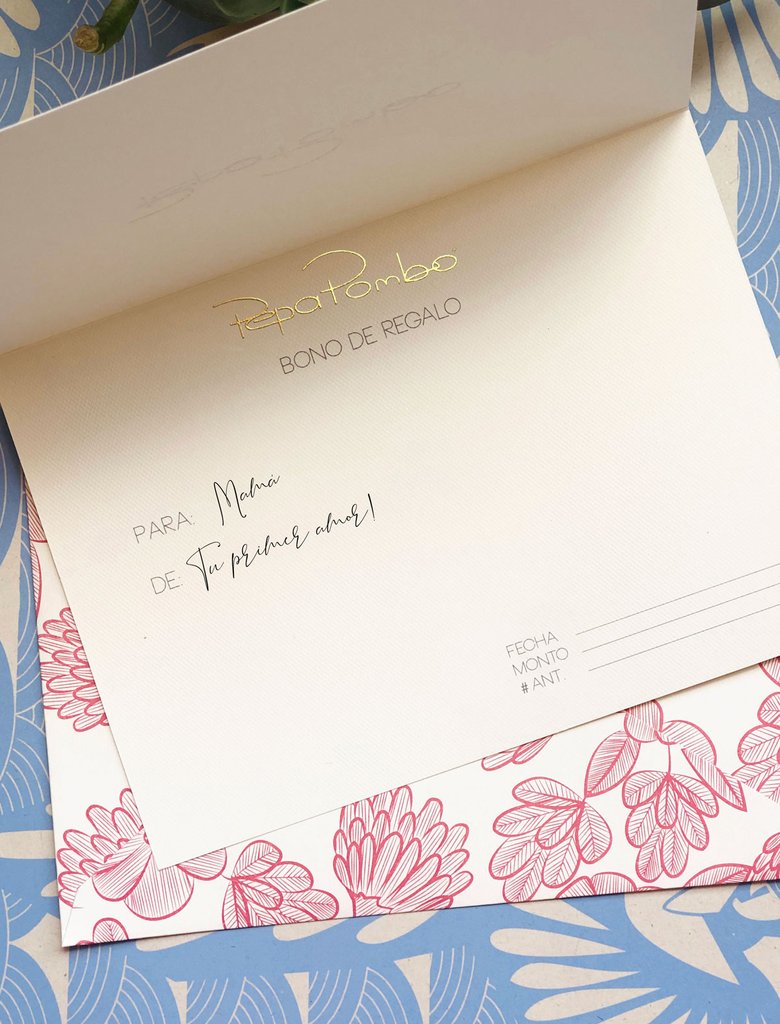 Pepa Pombo
BONO DE REGALO
PARA: Mamá
DE: Tu primer amor!
FECHA
MONTO
#ANT.